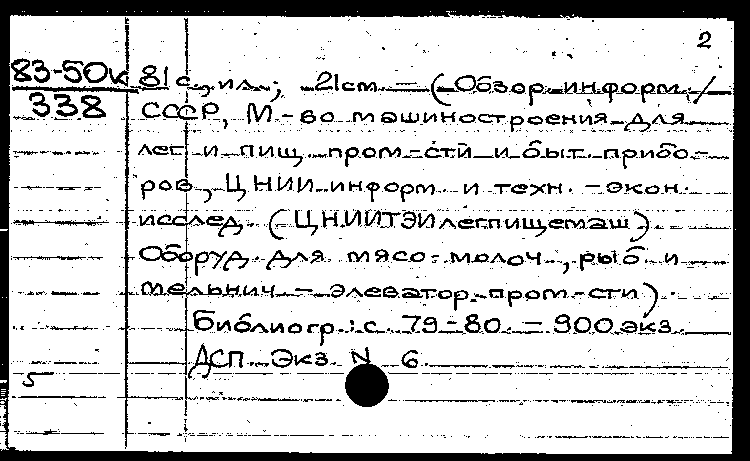 2
83-50к 81 с., ил.; 21см. — (Обзор. информ. /
338 СССР, М-во машиностроения для
лег. и пищ. пром-сти и быт. прибо-
ров, ЦНИИ информ. и техн.-экон.
исслед. (ЦНИИТЭИлегпищемаш).
Оборуд. для мясо-молоч., рыб. и
мельнич-элеватор. пром-сти).
Библиогр.: с. 79-80. — 900 экз.
ДСП. Экз. N 6.
5